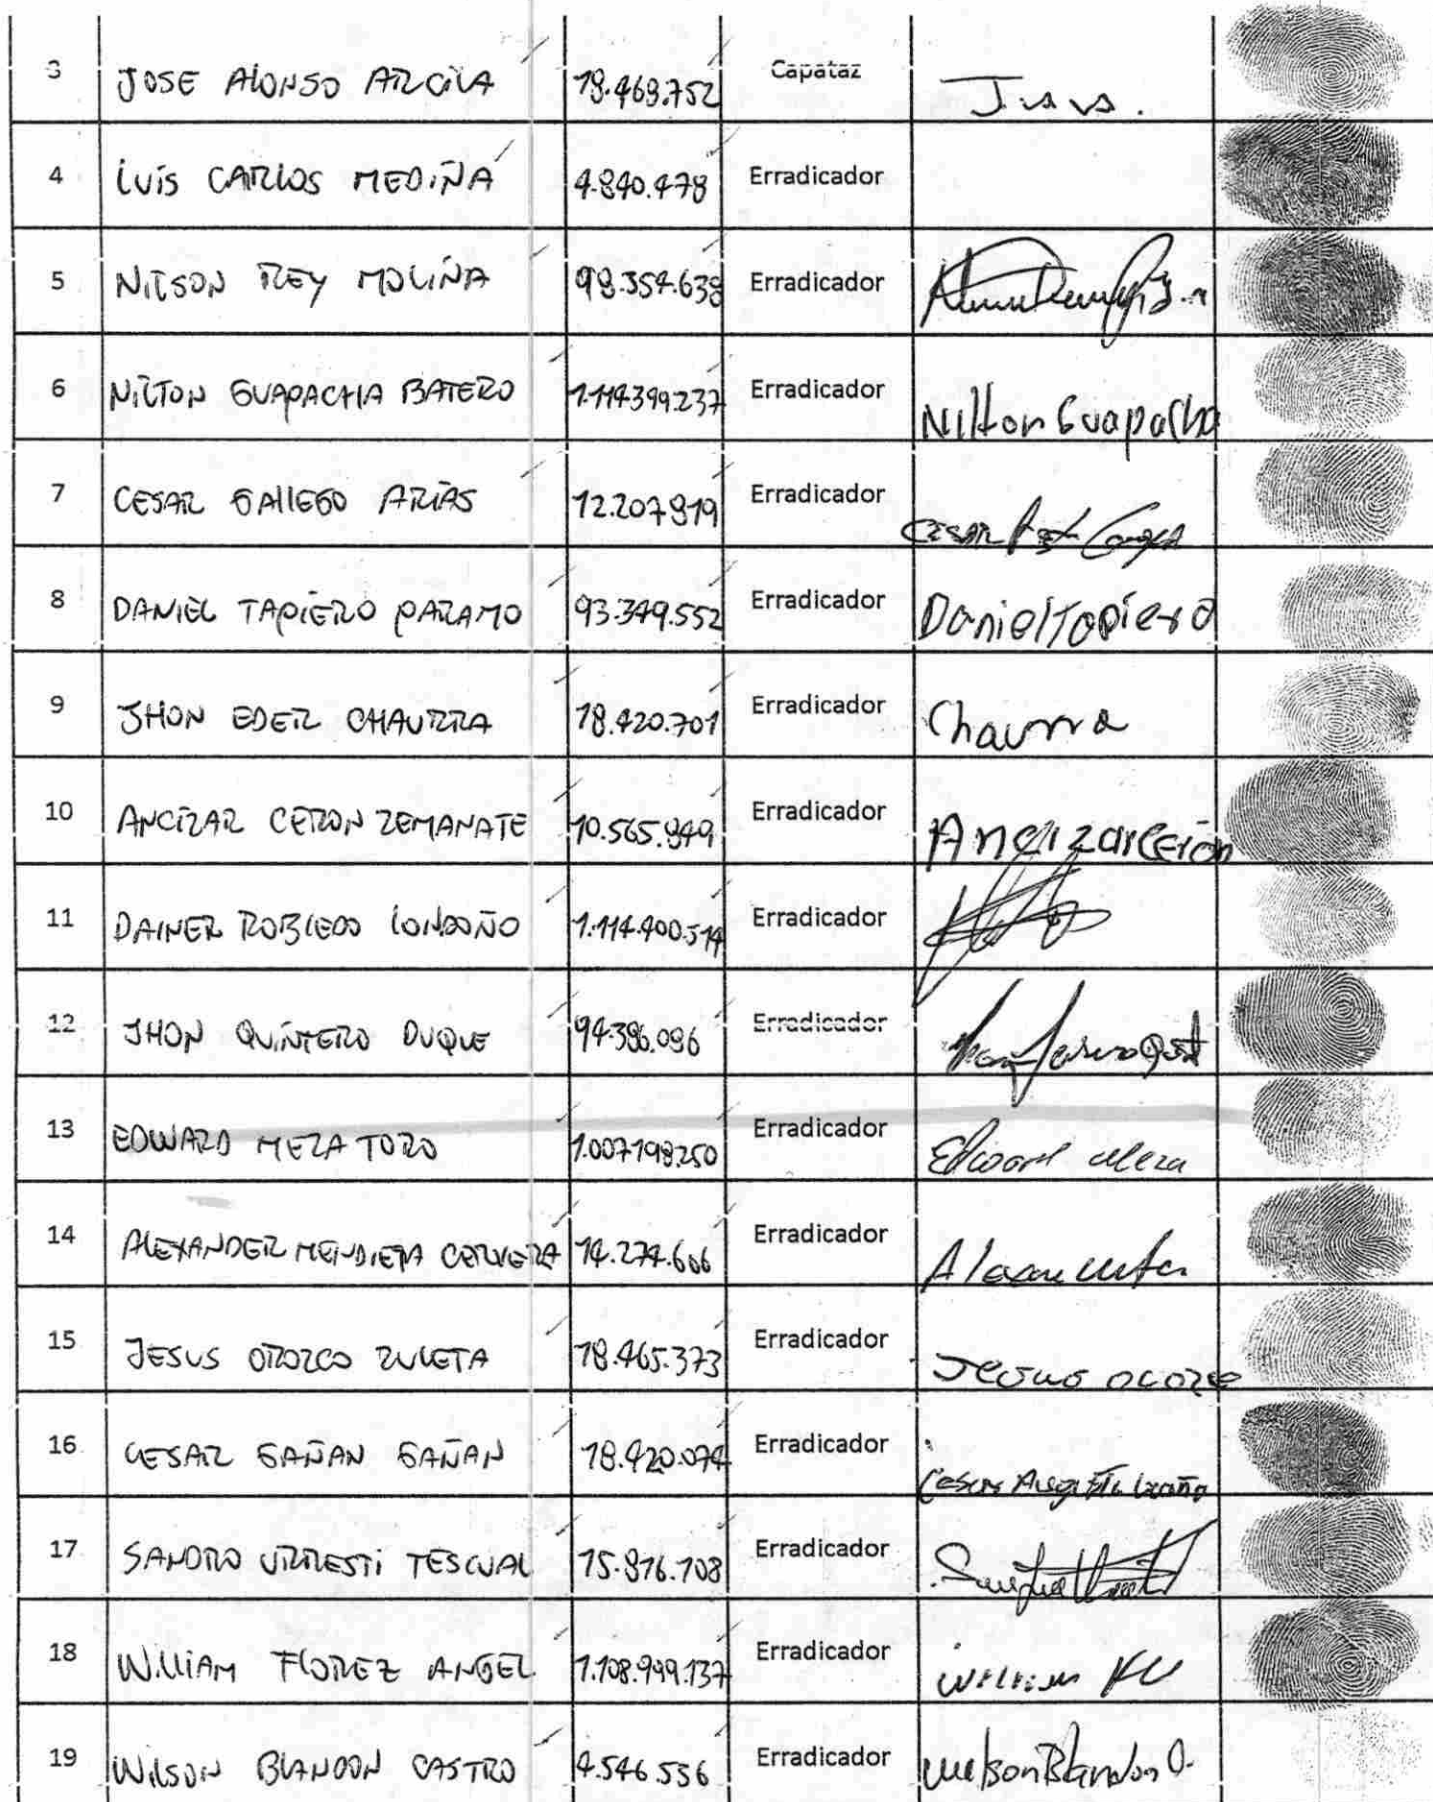 3 JOSE ALONSO ARCILA 18.469.752 Capataz
4 LUIS CARLOS MEDIÑA 4.840.478 Erradicador
5 NILSON REY MOLIÑA 98.354.638 Erradicador
6 NILTON GUAPACHA BATERO 1.114.399.237 Erradicador Nilton Guapacha
7 CESAR GALLEGO ARIAS 12.207.819 Erradicador CESAR
8 DANIEL TAPIERO PARAMO 93.349.552 Erradicador Daniel Tapiero
9 JHON EDER CHAURRA 18.420.701 Erradicador Chaurra
10 ANCIZAR CERON ZEMANATE 10.565.849 Erradicador Ancizar Ceron
11 DAINER ROBLEDO LONDOÑO 1.114.400.514 Erradicador
12 JHON QUINTERO DUQUE 94.386.086 Erradicador
13 EDWARD MEZA TORO 1.007.198.250 Erradicador Edward Meza
14 ALEXANDER MENDIETA CERVERA 14.274.606 Erradicador
15 JESUS OROZCO ZULETA 18.465.373 Erradicador
16 CESAR GAÑAN GAÑAN 18.420.074 Erradicador
17 SANDRO URRESTI TESCUAL 15.876.708 Erradicador
18 WILLIAM FLOREZ ANGEL 1.108.999.137 Erradicador William
19 WILSON BLANDON CASTRO 4.546.556 Erradicador Wilson Blandon